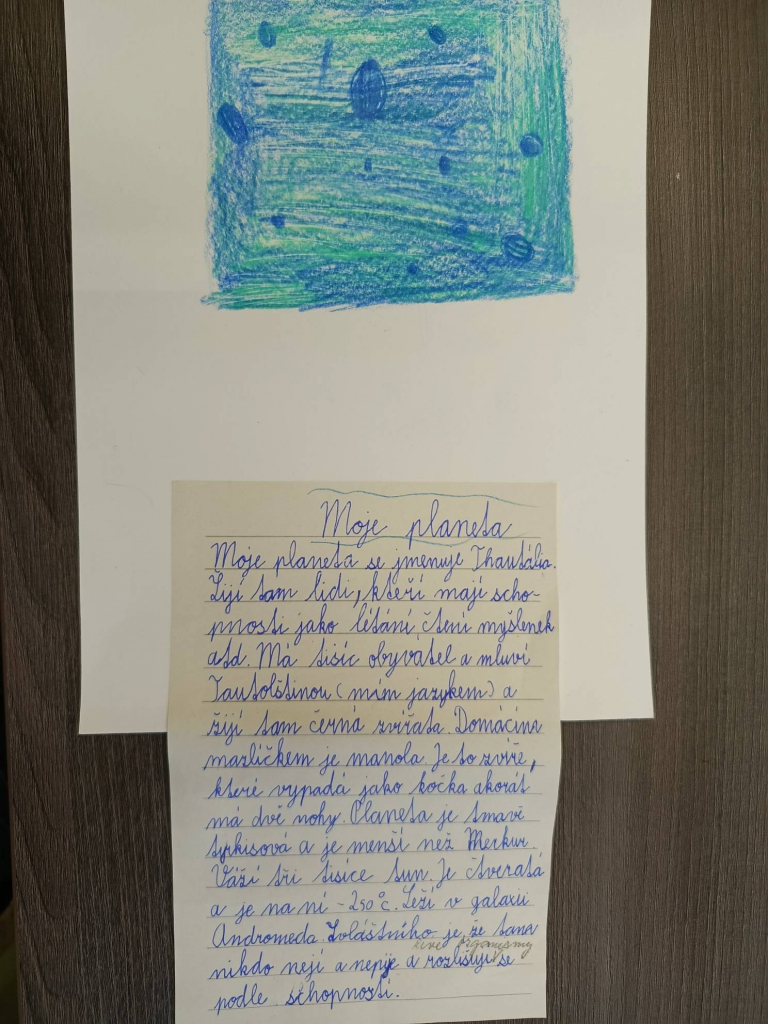 Moje planeta
Moje planeta se jmenuje Thautália.
Žijí tam lidi, kteří mají scho-
pnosti jako létání, čtení myšlenek
atd. Má tisíc obyvatel a mluví
Tautolštinou (mím jazykem) a
žijí tam černá zvířata. Domácína
mazlíčkem je manola. Je to zvíře,
které vypadá jako kočka akorát
má dvě nohy. Planeta je tmavě
tyrkisová a je menší než Merkur.
Váží tři tisíce tun. Je čtveratá
a je na ní -250°c. Leží v galaxii
Andromeda. Zvláštního je, že tam
živé organysmy
nikdo nejí a nepije a rozlišují se
podle schopností.